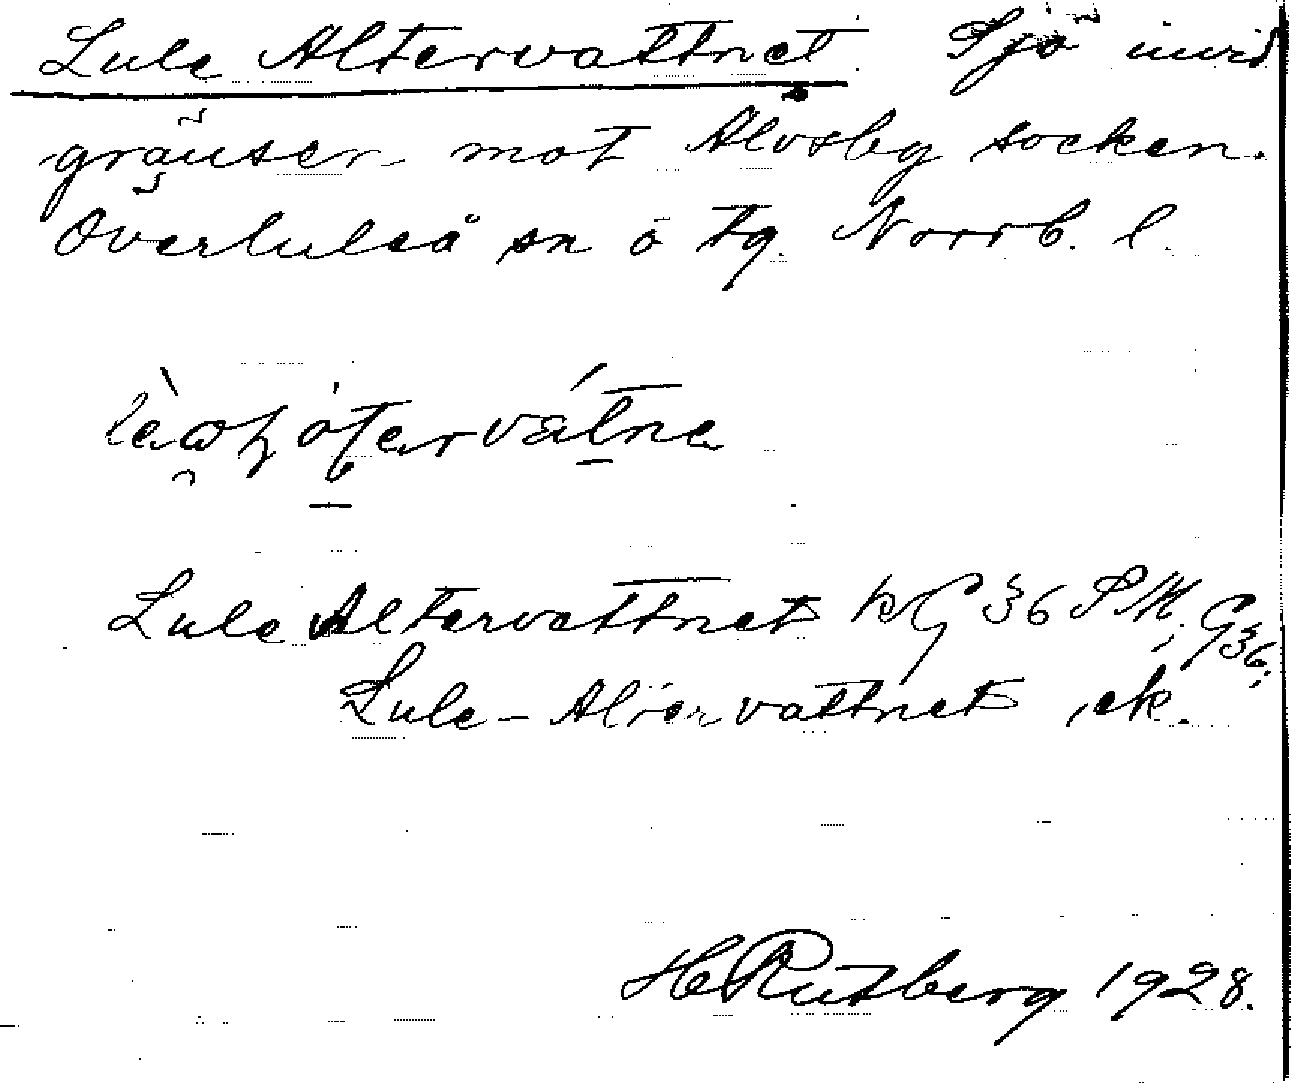 Lule Altervattnet. Sjö invid
gränser mot Älvsby socken.
Överluleå sn o tg. Norrb. l.
Lule Altervattnet hG 36 SM, G36;
Lule-Altervattnet, ek.
H Rutberg 1928.